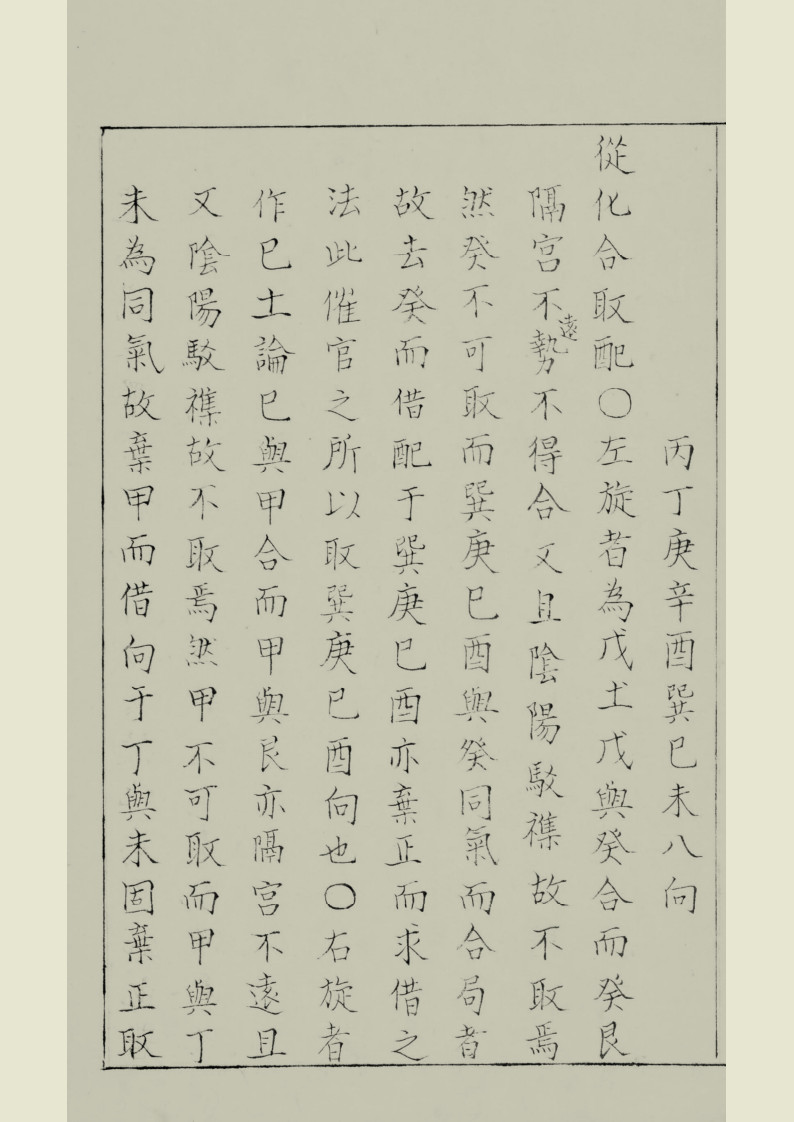 丙丁庚辛酉巽巳未八向
從化合取配〇左旋者為戊土戊與癸合而癸艮
隔宮不遠勢不得合又且陰陽駁襍故不取焉
然癸不可取而巽庚巳酉與癸同氣而合局者
故去癸而借配于巽庚巳酉亦棄正而求借之
法此催官之所以取巽庚巳酉向也〇右旋者
作巳土論巳與甲合而甲與艮亦隔宮不遠且
又陰陽駁襍故不取焉然甲不可取而甲與丁
未為同氣故棄甲而借向于丁與未固棄正取